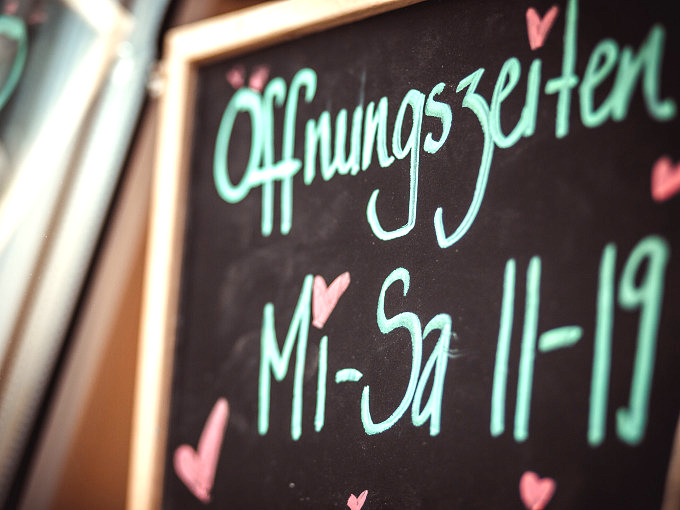 Öffnungszeiten
Mi-Sa 11-19